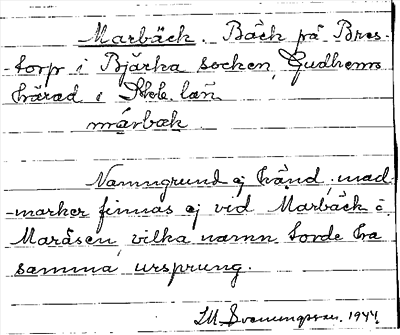 Marbäck. Bäck på Bres-
torp i Bjärka socken, Gudhems
härad i Skb. län
márbæk.
Namngrund ej känd, mad-
-marker finnas ej vid Marbäck o.
Maråsen, vilka namn torde ha
samma ursprung.
1944